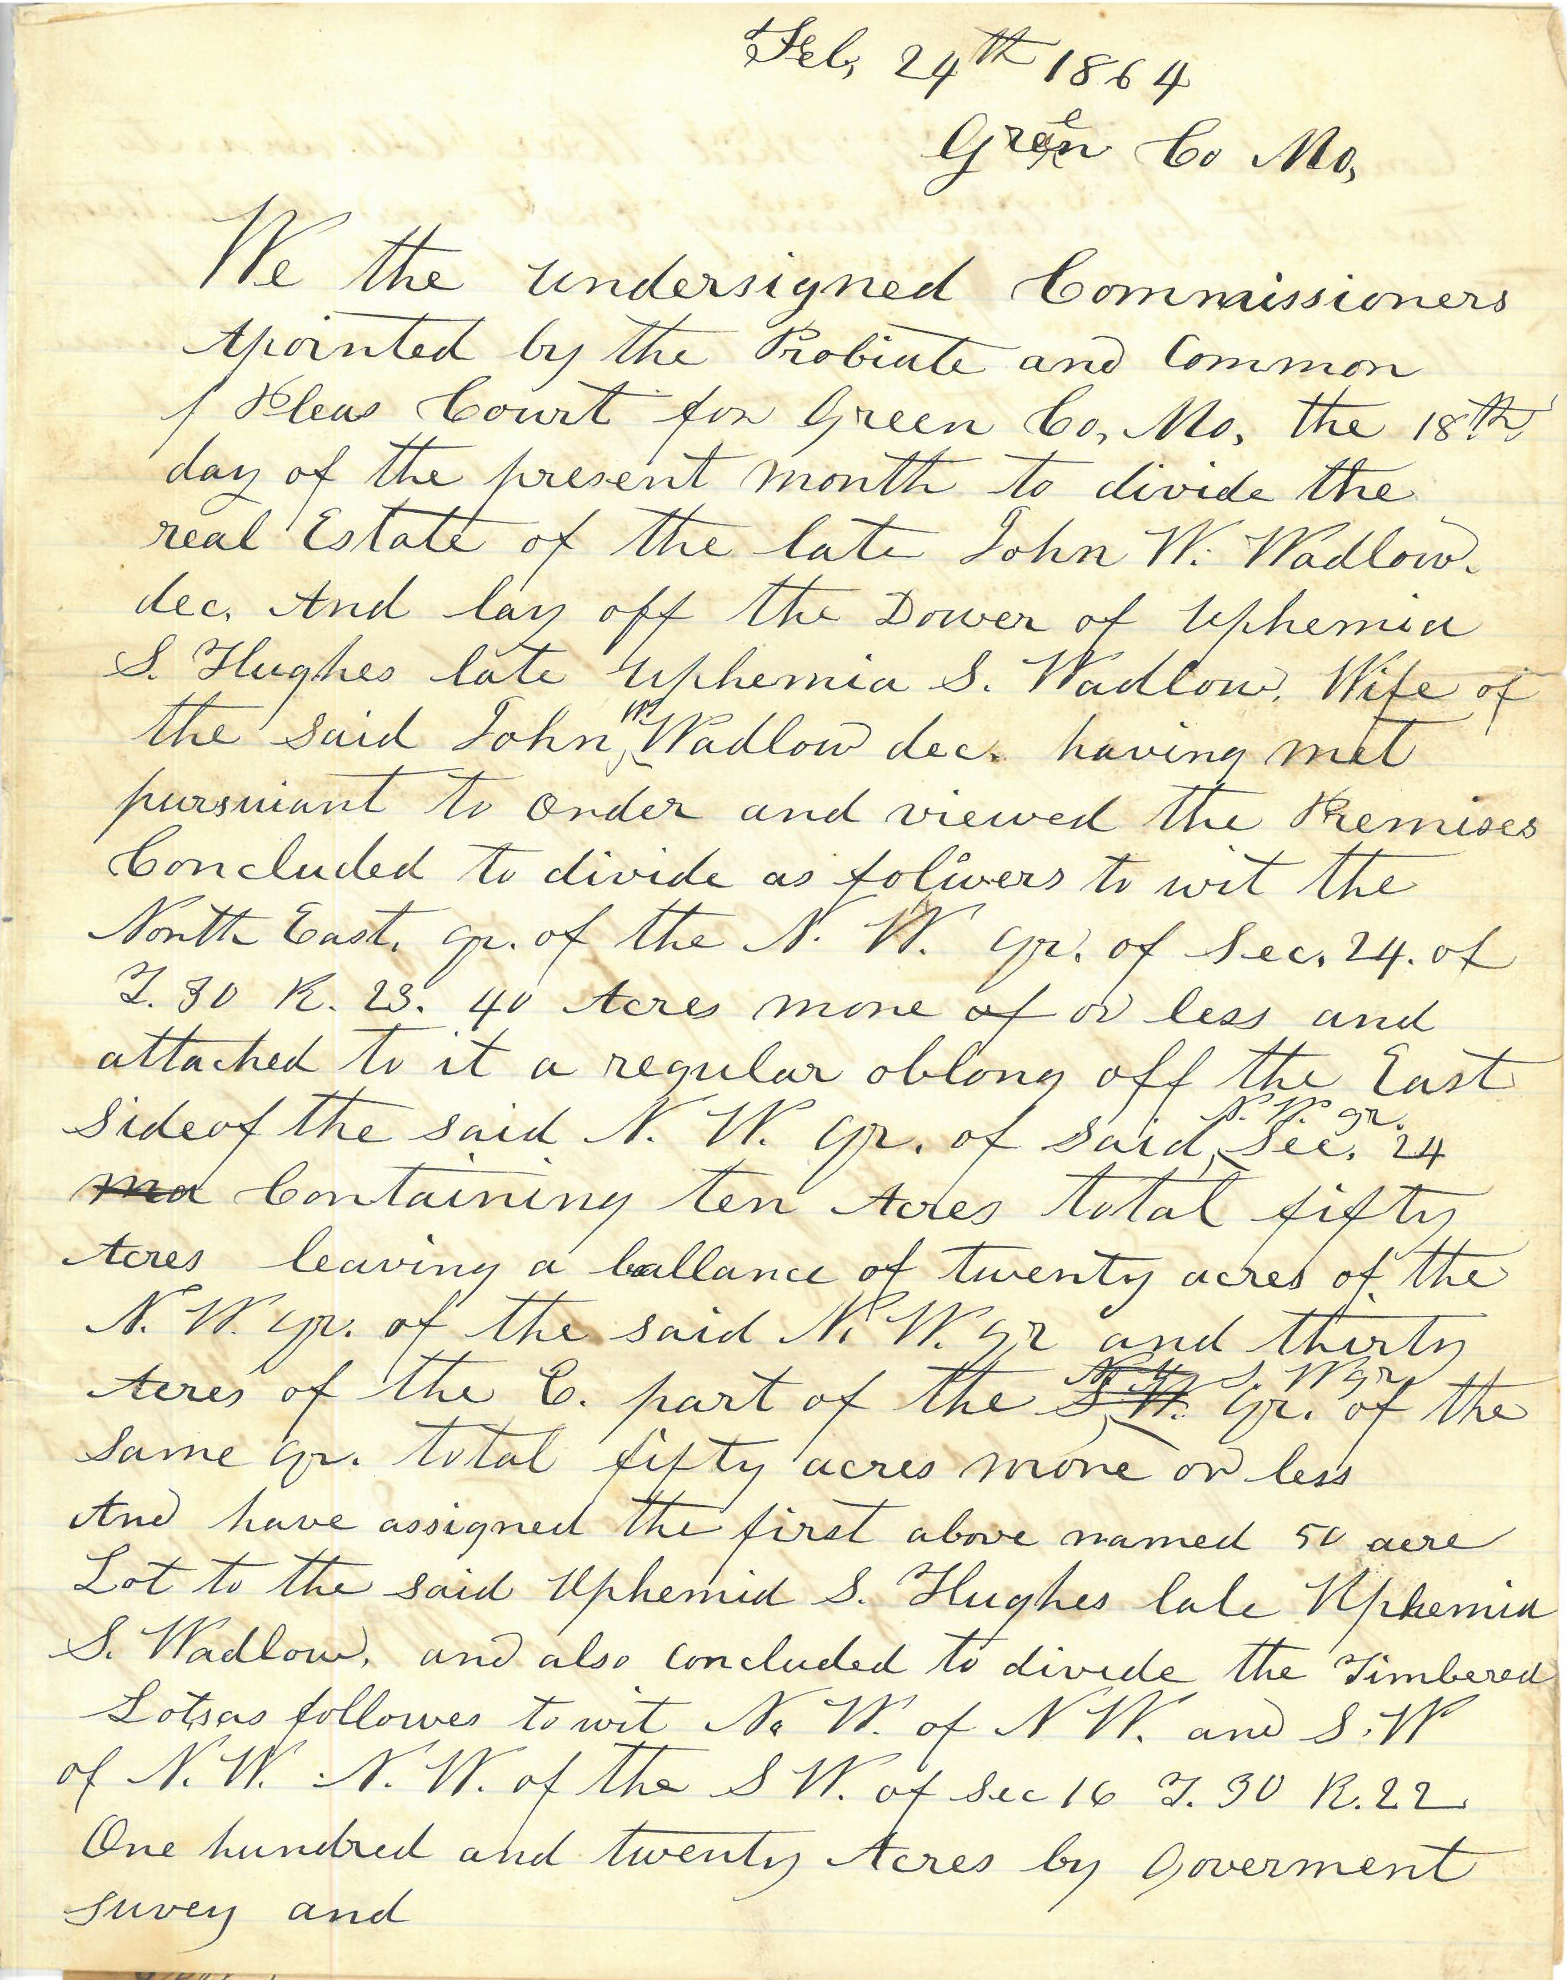 Feb, 24th 1864
Green Co Mo,
We the undersigned Commissioners
Apointed by the Probiate and Common
Pleas Court for Green Co, Mo, the 18th,
day of the present month to divide the
real Estate of the late John W. Wadlow.
dec. And lay off the Dower of Uphemia
S. Hughes late Uphemia S. Wadlow, Wife of
the said John W Wadlow dec. having met
pursuiant to Order and viewed the Premises
Concluded to divide as to wit the
North East, qr. of the N. W. qr. of Sec. 24. of
T. 30 R. 23. 40 Acres more of or less and
attached to it a regular oblong off the East
side of the said N. W. qr. of said N. W. qr. Sec. 24
ma Containing ten Acres total fifty
Acres leaving a ballance of twenty acres of the
N. W. qr. of the said N. W. qr and thirty
Acres of the E. part of the S. W. S. W qr Qr. of the
same qr. total fifty acres more or less
And have assigned the first above named 50 acre
Lot to the said Uphemia S. Hughes late Uphemia
S. Wadlow, and also concluded to divide the Timbered
Lots as followes to wit N. W. of N W. and S. W
of N. W. N. W. of the S W. of Sec 16 T. 30 R. 22
One hundred and twenty Acres by Goverment
suvey and